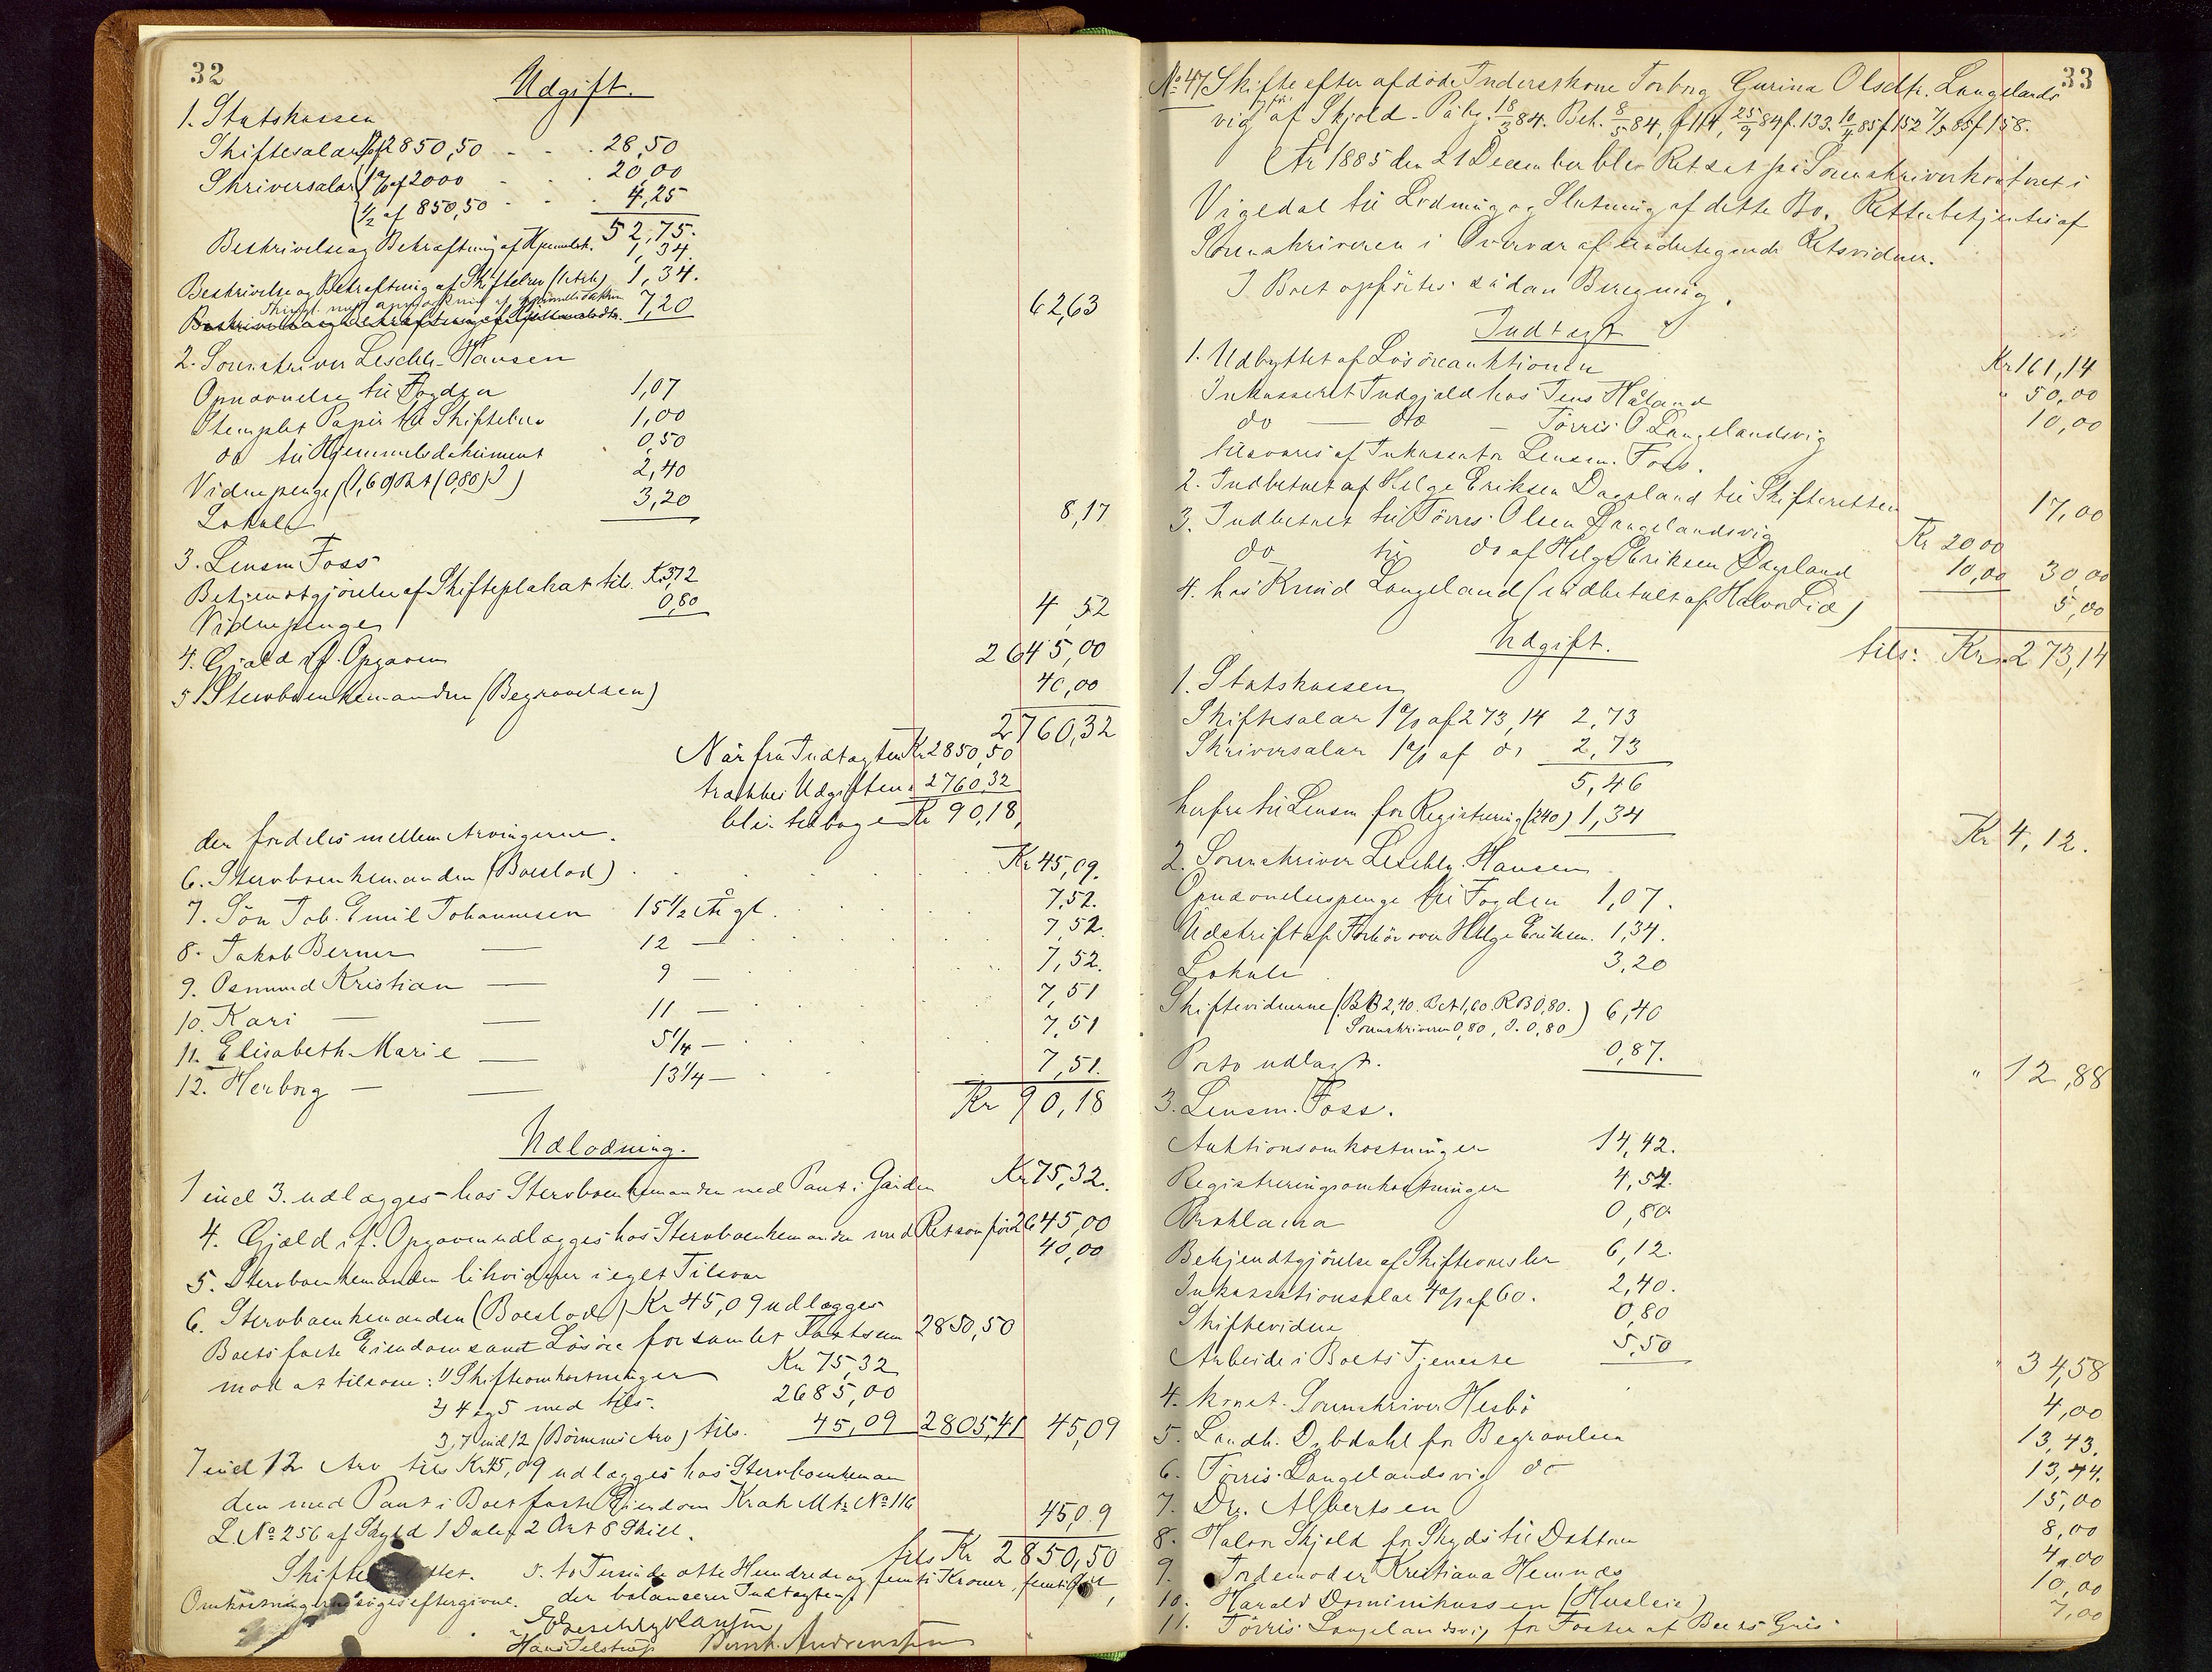 32
Udgift.
1. Statskassen
Skiftesalar 1% af 2850,50 - - . 28,50
Skriversalar (1% af 2000 - . 20,00
(½ af 850,50 - . . 4,25
52,75.
Beskrivelse og Bekræftning af Hjemmelsd. 1,34.
Beskrivelse og Bekræftning af Skiftebrev 1,34.
7,20
62,63
2. Sorenskriver Leschly-Hansen
Opnævnelse til Fogden 1,07
Stemplet Papir til Skiftebrev 1,00
do til Hjemmelsdokument 0,50
Vidnepenge 2,40
Lokale 3,20
8,17
3. Lensm Foss
Bekjendtgjörelse af Skifteplakat tils. Kr 3,72
Vidnepenge 0,80
4,52
4. Gjæld if. Opgaven 2645,00
5 Stervboenkemanden (Begravelsen) 40,00
2760,32
Når fra Indtægten Kr 2850,50
trækkes Udgiften " 2760,32
blir tilbage Kr 90,18,
der fordeles mellem Arvingerne.
6. Stervboenkemanden (Boeslod) . . . . Kr 45,09.
7. Sön Job. Emil Johannesen 15½ År gl. . . . 7,52.
8. Jakob Berner — 12 — . . . 7,52.
9. Osmund Kristian — 9 — . . . 7,52.
10. Kari — — 11 — . . . 7,51
11. Elisabeth Marie — 5¼ — . . . 7,51
12. Herborg — — 13¼ — . . . 7,51.
Kr 90,18
Udlodning.
1 incl 3. udlægges hos Stervboenkemanden med Pant i Gården Kr 75,32.
4. Gjæld if. Opgaven udlægges hos Stervboenkemanden med Ret som för 2645,00
5. Stervboenkemanden likviderer i eget Tilsvar 40,00
6. Stervboenkemanden (Boeslod) Kr 45,09 udlægges
Boets faste Eiendom samt Lösöre for samlet Takstsum 2850,50
mod at tilsvare: 1) Skifteomkostninger Kr 75,32
2) 4 og 5 med tils. 2685,00
3, 7 incl 12 (Börnenes Arv) tils. 45,09 2805,41 45,09
7 incl 12 Arv tils Kr 45,09 udlægges hos Stervboenkeman
den med Pant i Boets faste Eiendom Krak Mtr No 116
L. No 256 af Skyld 1 Daler 2 Ort 8 Skill. 45,09
tils Kr 2850,50
to Tusinde otte Hundrede og femti Kroner, femti Öre,
Omkostningerne eftergivne. der balancerer Indtægten
Leschly Hansen
Hans Bernh. Andreassen
33
No 47 Skifte efter afdöde Inderstkone Torborg Gurina Olsdtr. Langelands
vig af Skjold - Påbg. 18/3 84. Beh. 8/5 84, f 114, 25/9 84 f. 133. 10/4 85 f 152 7/5 85 f 158.
År 1885 den 21 December blev Ret sat på Sorenskriverkontoret i
Vigedal til Lodning og Slutning af dette Bo. Retten betjentes af
Sorenskriveren i Overvær af undertegnede Retsvidner.
I Boet opförtes sådan Beregning.
Indtægt
1. Udbyttet af Lösöreauktionen Kr 161,14
Inkasseret Indgjæld hos Jens Håland " 50,00
do — do — Törris O. Langelandsvig 10,00
tilsvares af Inkassator Lensm. Foss.
2. Indbetalt af Helge Eriksen Dagsland til Skifteretten 17,00
3. Indbetalt til Törris Olsen Langelandsvig Kr 20,00
do til do af Helge Eriksen Dagsland 10,00 30,00
4. hos Knud Langeland (indbetalt af Halvor Lid) 5,00
tils: Kr 273,14
Udgift.
1. Statskassen
Skiftesalar 1% af 273,14 2,73
Skriversalar 1% af do 2,73
5,46
herfra til Lensm for Registrering (240) 1,34
Kr 4,12.
2. Sorenskriver Leschly Hansen
Opnævnelsespenge til Fogden 1,07.
Udskrift af Forhör over Helge Eriksen. 1,34.
Lokale 3,20
Skiftevidnerne (BB 2,40. BA 1,60. RB 0,80. Sorenskriveren 0,80, J. 0,80) 6,40
Porto udlagt. 0,87.
" 12,88
3. Lensm. Foss.
Auktionsomkostninger 14,42.
Registreringsomkostninger 4,54.
Proklama 0,80
Bekjendtgjörelse af Skiftevæsler 6,12.
Inkassationssalar 4% af 60. 2,40.
Skiftevidne 0,80
Arbeide i Boets Tjeneste 5,50
" 34,58
4. konst. Sorenskriver Hesbö 4,00
5. Landh. Dybdahl for Begravelsen 13,43.
6. Törris Langelandsvig do 13,44.
7. Dr. Albertsen 15,00
8. Halvor Skjold for Skyds til Doktoren 8,00
9. Jordemoder Kristiana Hemnæs 4,00
10. Harald Dominikussen (Husleie) 10,00
11. Törris Langelandsvig for Foster af Boets Gris 7,00